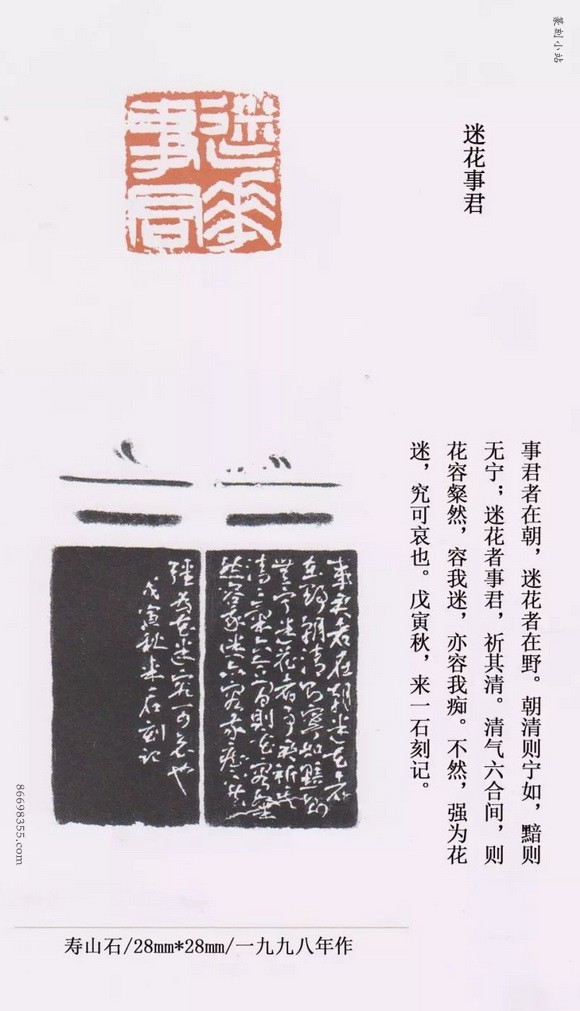 篆刻小站
迷花事君
迷花事君
事君者在朝，迷花者在野。朝清则宁如，黯则
无宁；迷花者事君，祈其清。清气六合间，则
花容粲然，容我迷，亦容我痴。不然，强为花
迷，究可哀也。戊寅秋，来一石刻记。
强为花迷究可哀也
戊寅秋来一石刻记
86698355.com
寿山石/28mm*28mm/一九九八年作